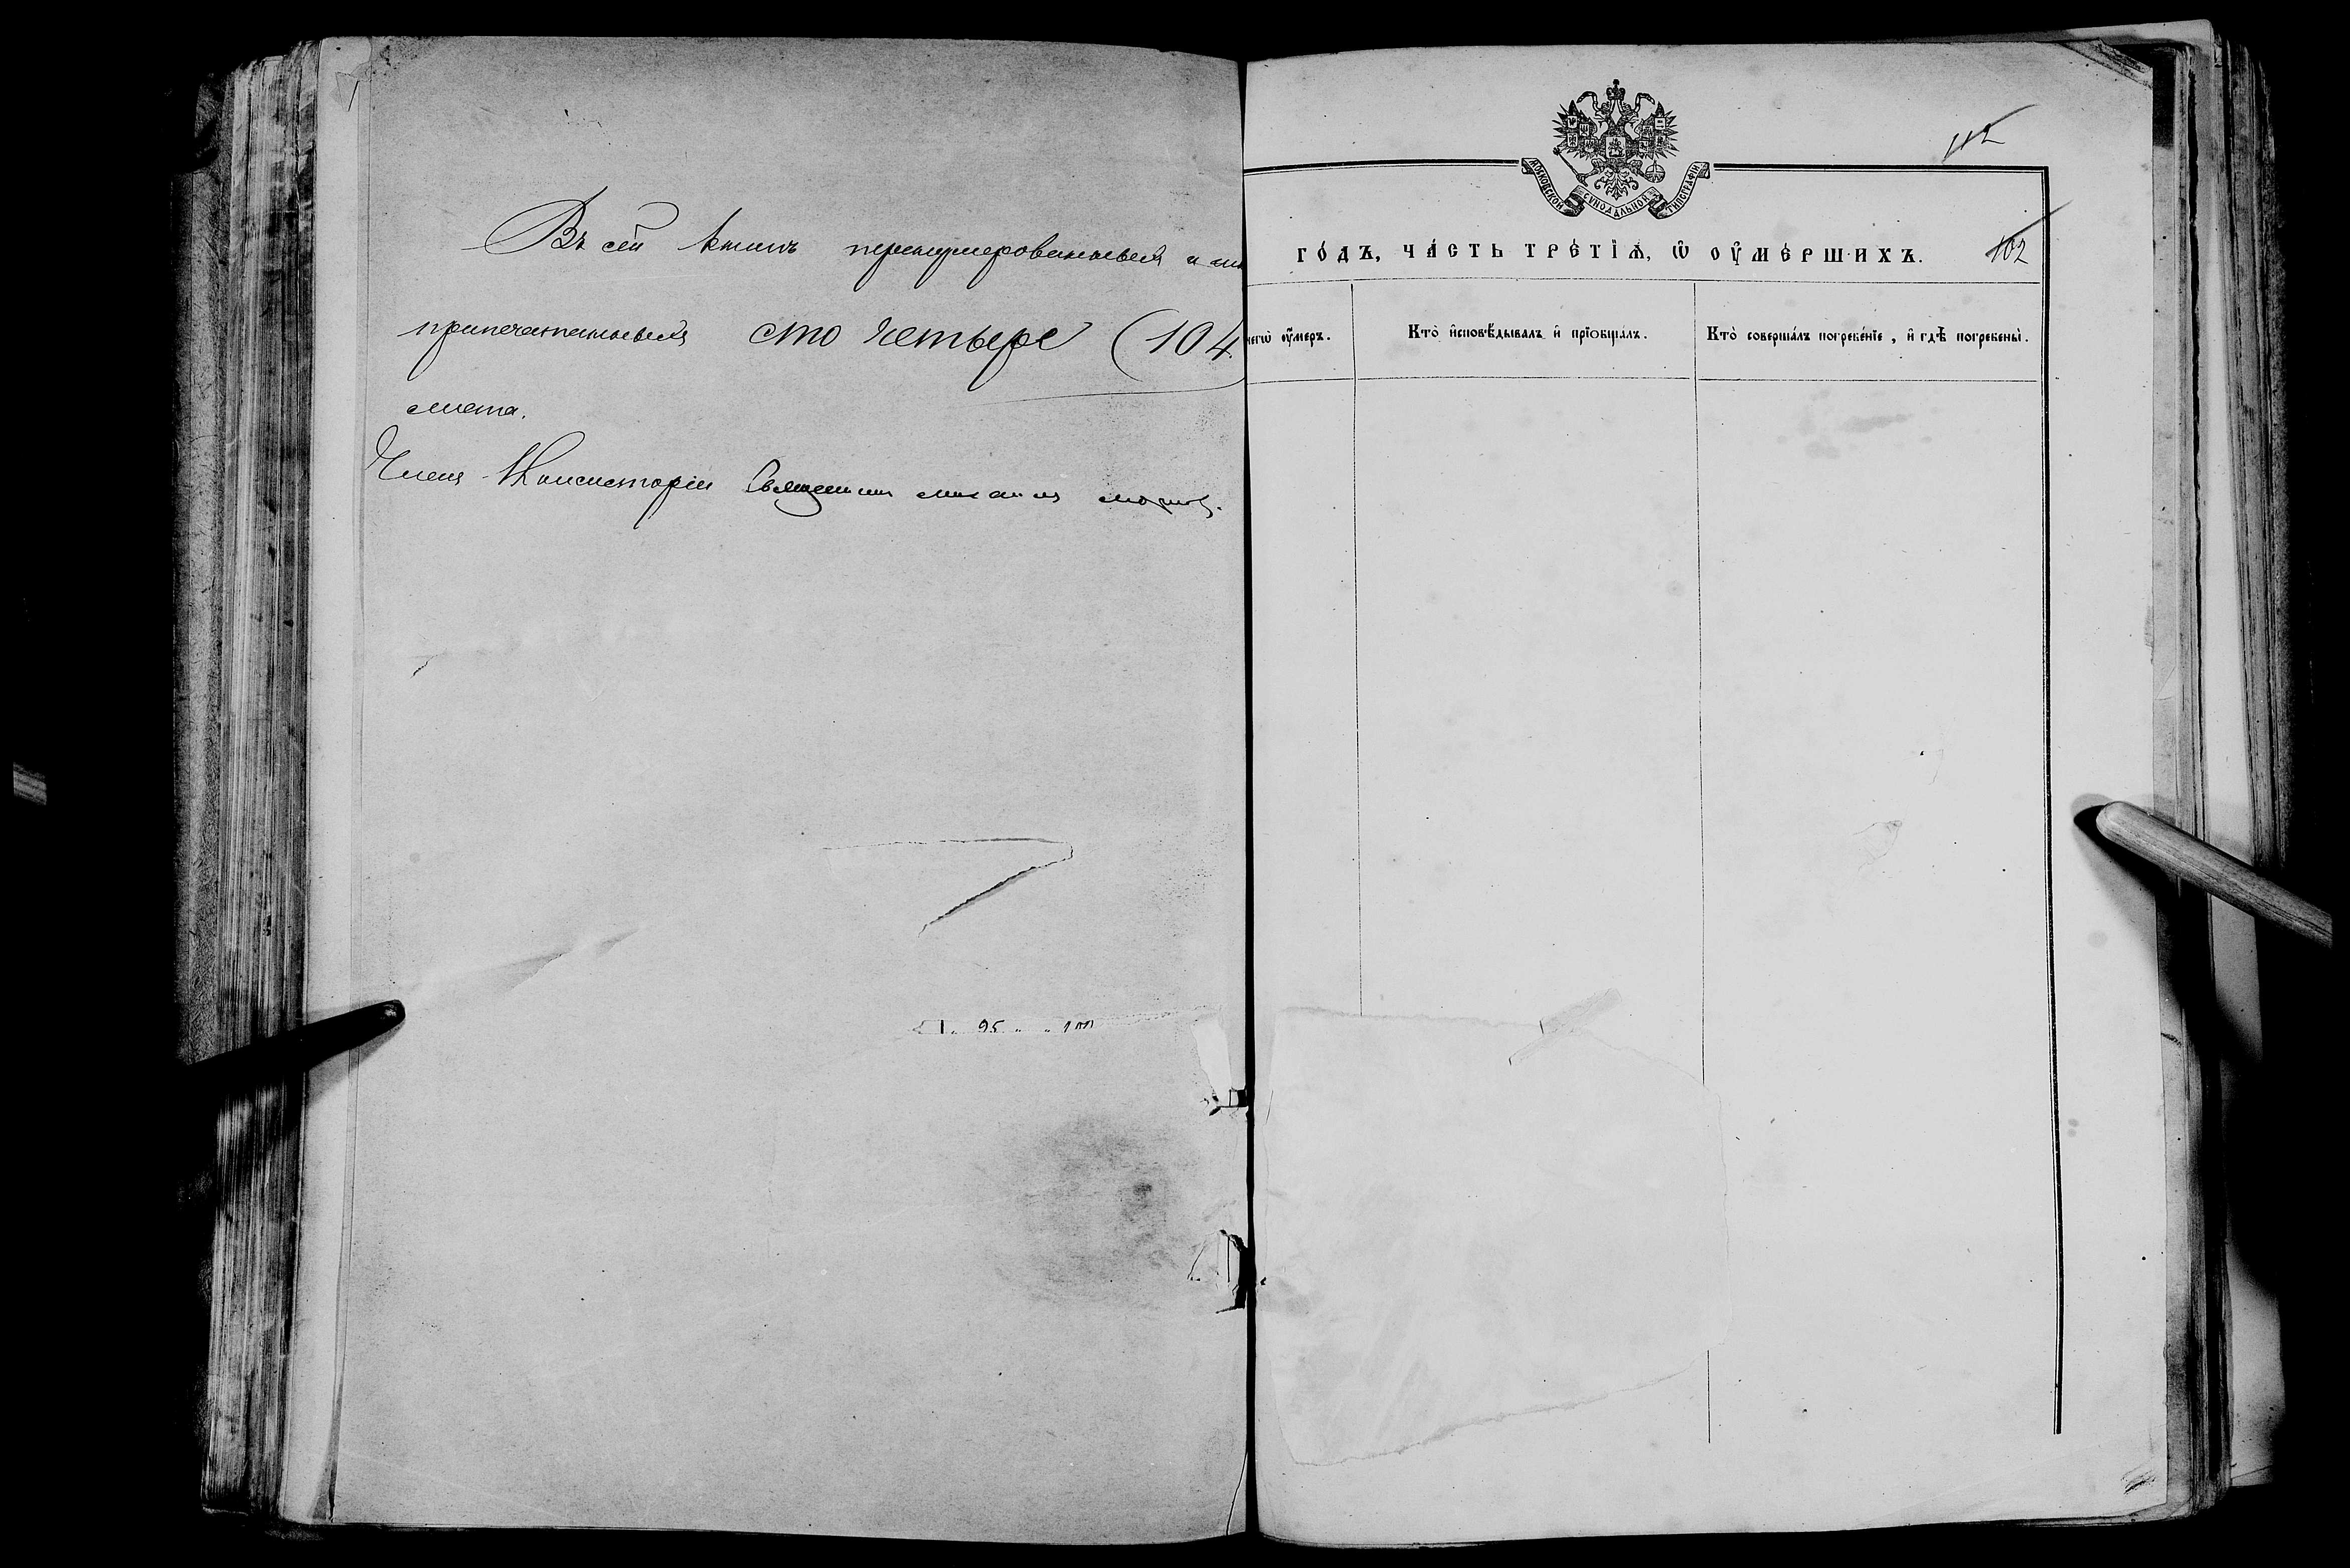 Въ сей книгѣ перенумерованныхъ и
припечатанныхъ сто четыре (104
листа.
Членъ Консисторіи Священникъ Михаилъ
95 " " 100
112
МОСКОВСКОЙ СѴНОДАЛЬНОЙ ТИПОГРАФІИ
го́дъ, ча́сть тре́тїѧ, ѡ҆ оу҆ме́ршихъ.
102
чегѡ̀ оу҆́меръ.
Кто̀ и҆сповѣ́дывалъ и҆ прїѻбща́лъ.
Кто̀ соверша́лъ погребе́нїе, и҆ гдѣ̀ погребены̀.